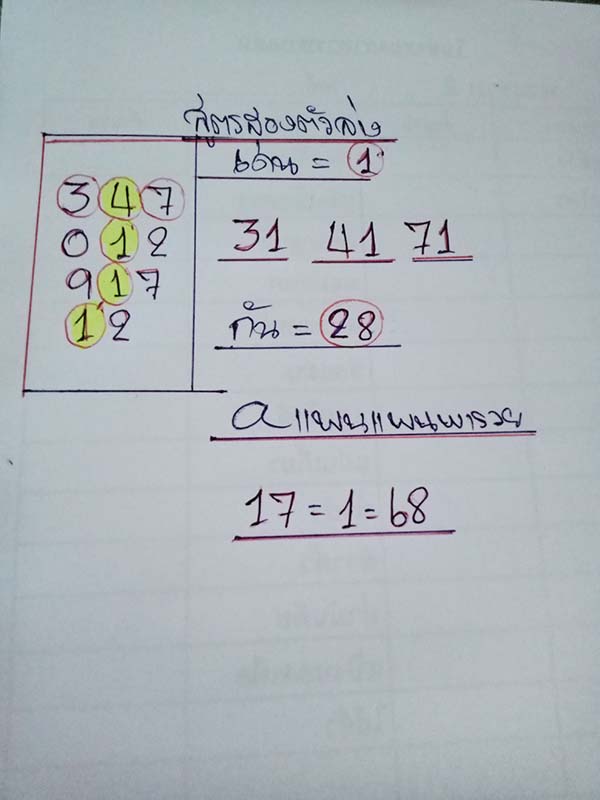 สูตรสองตัวล่าง
เด่น = 1
347
012
917
12
31 41 71
กัน = 28
แพนแพนพารวย
17 = 1 = 68